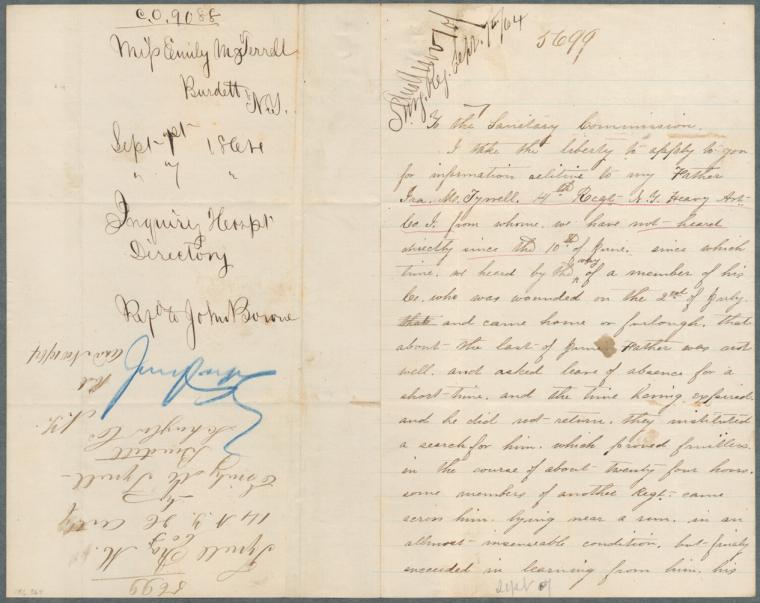 C.O. 9088
Miss Emily Mc Terrell
Burdett
N.Y.
Sept 1st 1864
" 7 "
Inquiry Hospt
Directory
Repd to John Bowne
5699
Tyrell
Co I
14 N.Y. H Arty
By
Emily Mc Tyrell
Burdett
Schuyler Co
N.Y.
Sept. 7/64
5699
To the Sanitary Commission.
I take the liberty to apply to you
for information relitive to my Father
Ira. Mc. Tyrrell. 4th Regt- N.Y. Heavy Art-
Co I. from whome. we have not-heard
directly since the 10th of June. since which
time. we heard by the way of a member of his
Co. who was wounded on the 2nd of July.
that and came home on furlough. that
about the last of June Father was not
well. and asked leave of absence for a
short-time. and the time having expired.
and he did not-return. they instituted
a search for him. which proved fruitless.
in the course of about twenty four hours.
some members of another Regt- came
across him. lying near a run. in an
allmost-insenseable condition. but-finaly
succeeded in learning from him. his
Sept 7